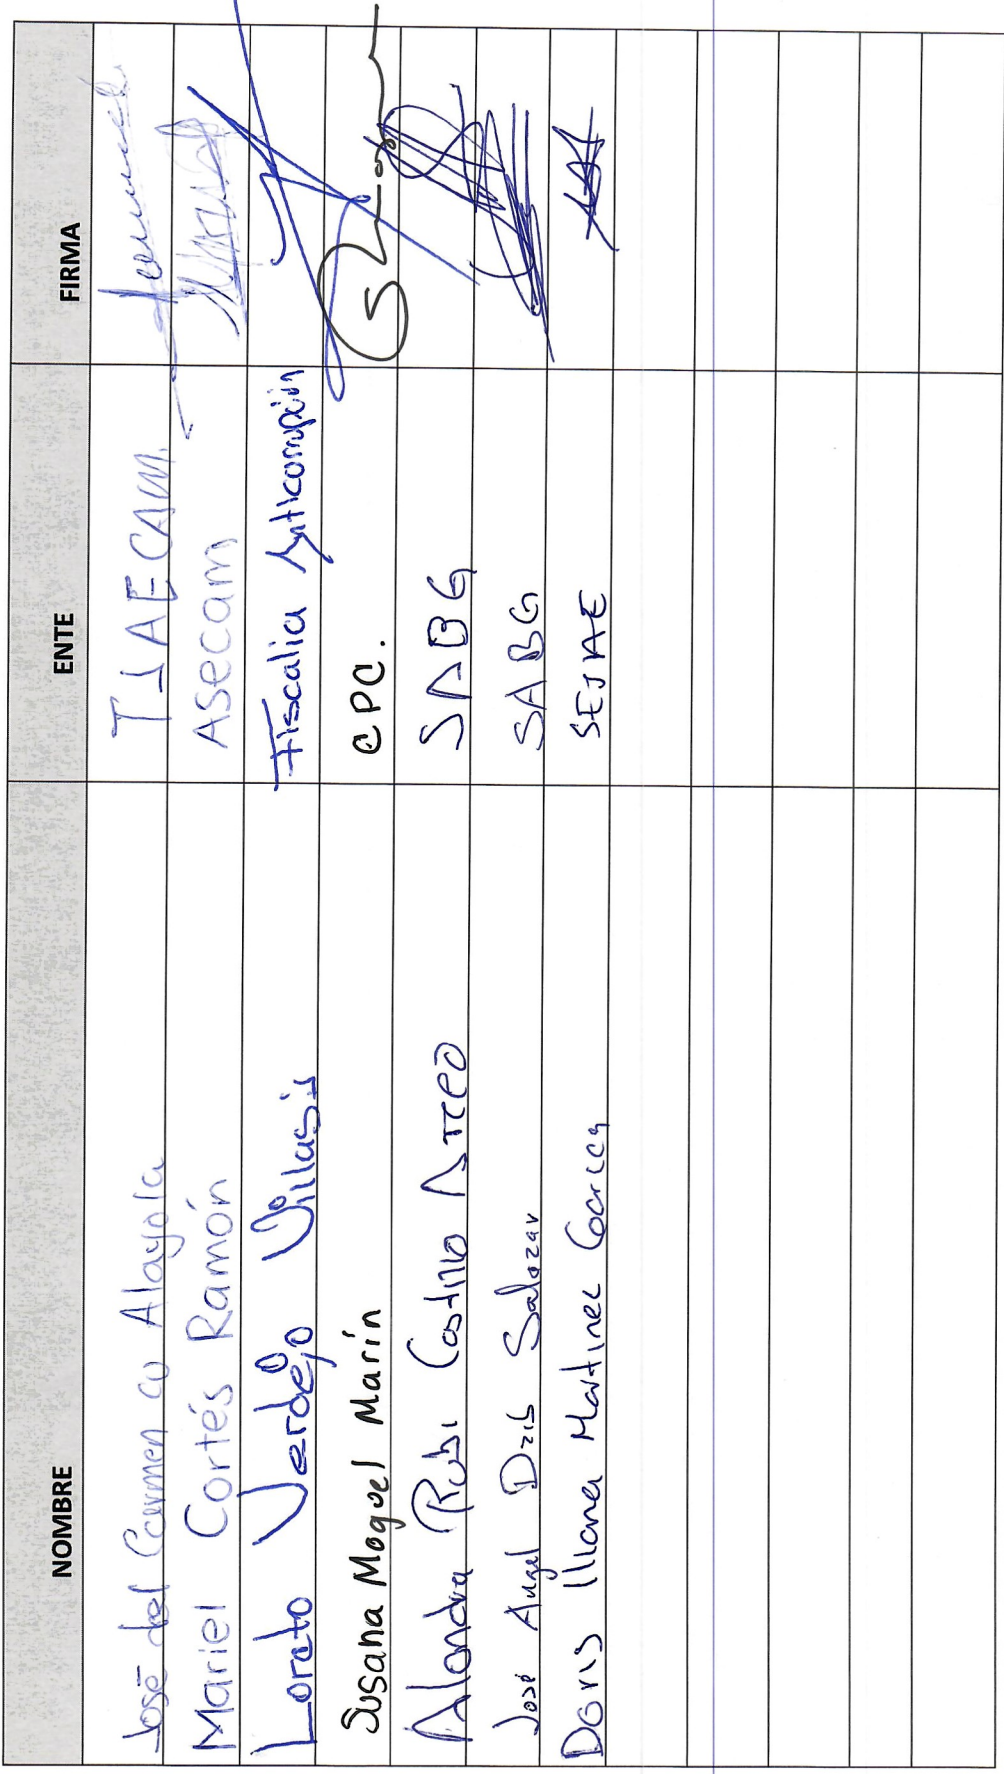 NOMBRE ENTE FIRMA
José del Carmen Cu Alayola TJAECAM.
Mariel Cortés Ramón Asecam
Loreto Verdejo Villasis Fiscalia Anticorrupción
Susana Moguel Marín CPC.
Alondra Rubi Castillo Arceo SABG
José Angel Dzib Salazar SABG
Doris Iliana Martinez SEJAE